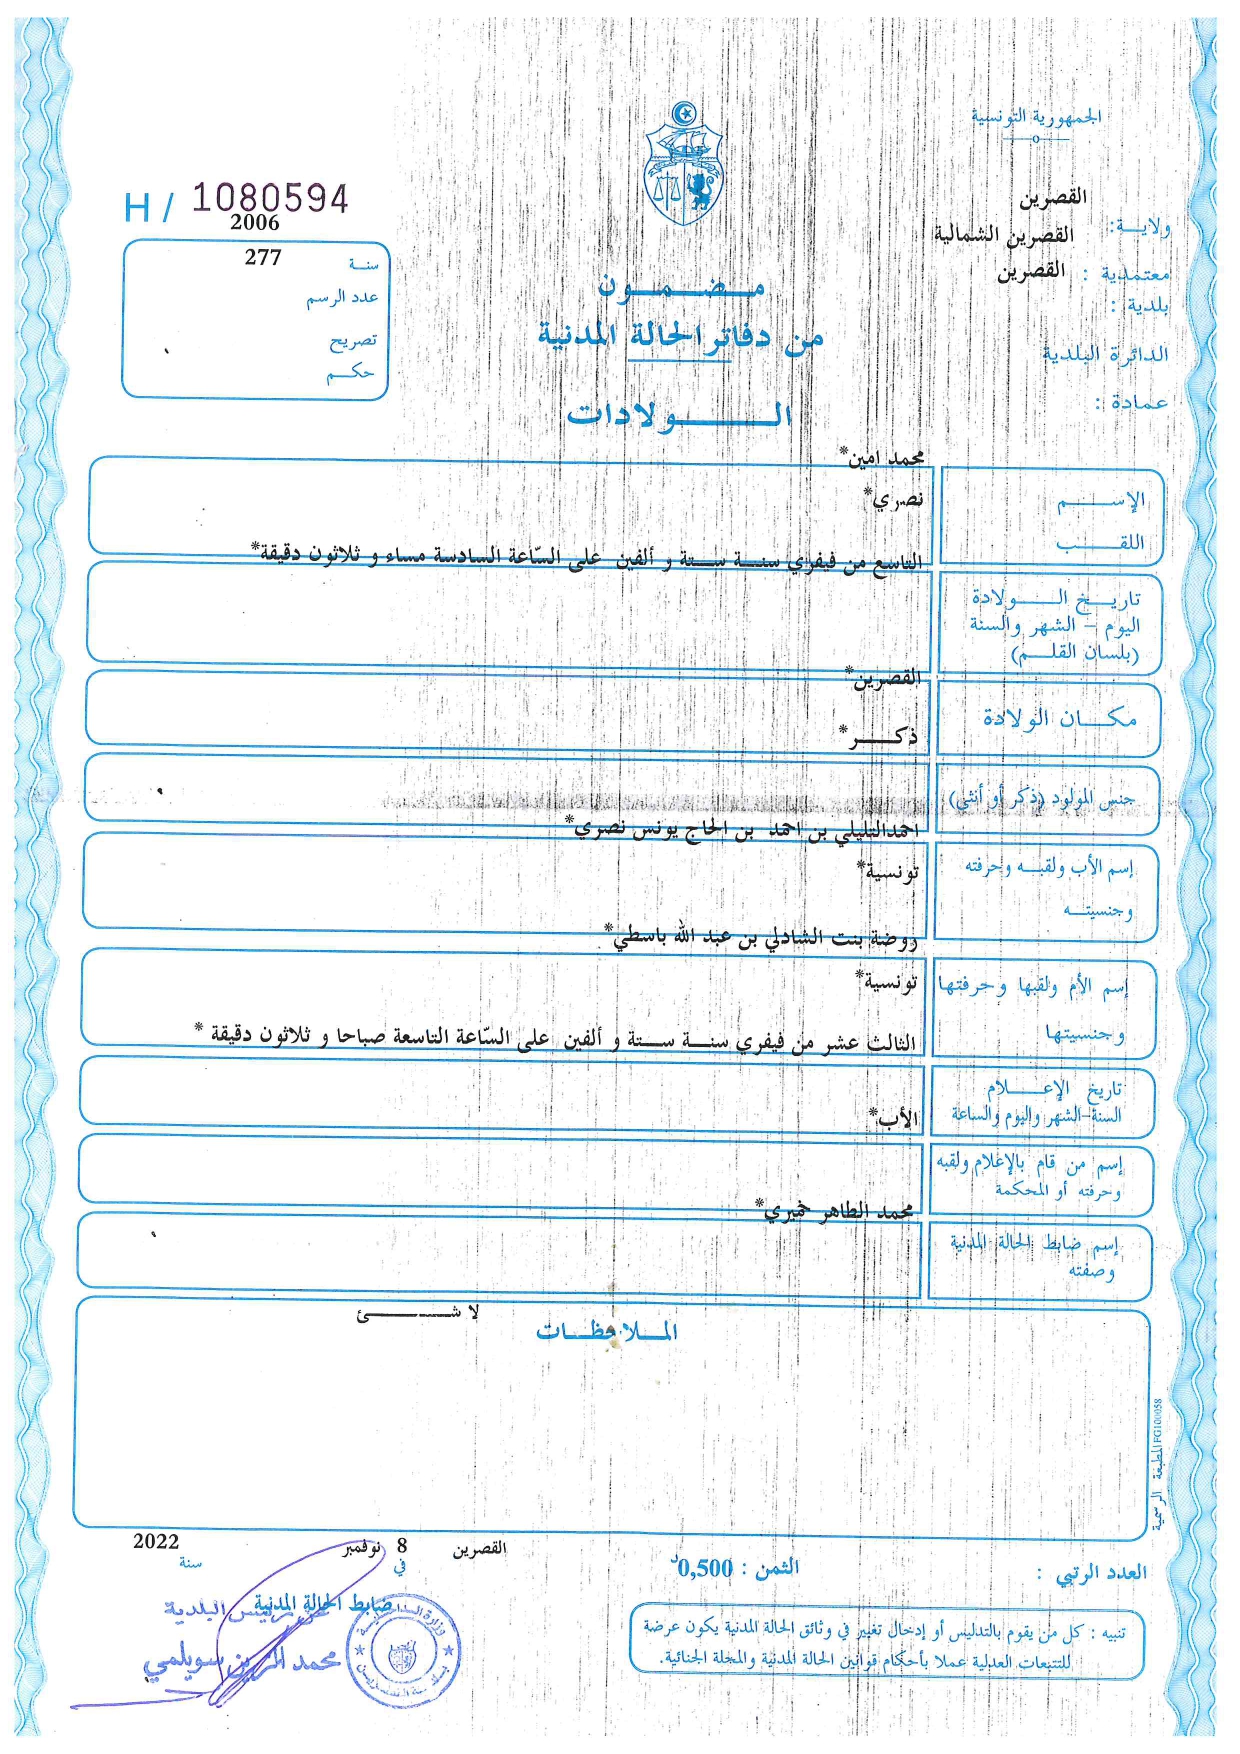 الجمهورية التونسية
H / 1080594
القصرين
ولايـــة:
2006
القصرين الشمالية
277
سنـة
معتمدية : القصرين
مـــضـــمـــون
عدد الرسم
بلدية :
من دفاتر الحالة المدنية
تصريح
الدائرة البلدية
حكـــم
عمادة :
الـــــــولادات
محمد امين*
الإســــم
نصري*
اللقــــب
التاسع من فيفري سنـــة ستة و ألفين على السّاعة السادسة مساء و ثلاثون دقيقة*
تاريــخ الـــــولادة
اليوم - الشهر والسنة
(بلسان القلـــم)
القصرين*
مكـــان الولادة
ذكـــــر*
جنس المولود (ذكر أو أنثى)
احمدالتليلي بن احمد بن الحاج يونس نصري*
إسم الأب ولقبـــه وحرفته
تونسية*
وجنسيتـــه
روضة بنت الشاذلي بن عبد الله باسطي*
إسم الأم ولقبها وحرفتها
تونسية*
وجنسيتها
الثالث عشر من فيفري سنـــة ستة و ألفين على السّاعة التاسعة صباحا و ثلاثون دقيقة *
تاريخ الإعـــــلام
السنة-الشهر واليوم والساعة
الأب*
إسم من قام بالإعلام ولقبه
وحرفته أو المحكمة
محمد الطاهر خميري*
إسم ضابط الحالة المدنية
وصفته
لا شـــــــئ
المـــلاحظـــات
المطبعة الرسمية FG100058
القصرين 8 نوفمبر 2022
في سنة
العدد الرتبي :
الثمن : 0,500د
ضابط الحالة المدنية
رئيس البلدية
تنبيه : كل من يقوم بالتدليس أو إدخال تغيير في وثائق الحالة المدنية يكون عرضة
للتتبعات العدلية عملا بأحكام قوانين الحالة المدنية والمجلة الجنائية.
محمد سويلمي